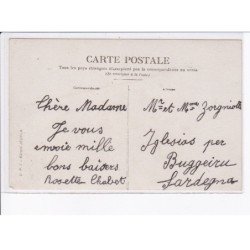 CARTE POSTALE
Tous les pays étrangers n'acceptent pas la correspondance au verso
(Se renseigner à la Poste)
Correspondance
Chère Madame
Je vous
envoie mille
bons baisers
Rosette Chabert
Mr et Mme Zorgniotti
Iglesias per
Buggeiru
Sardegna